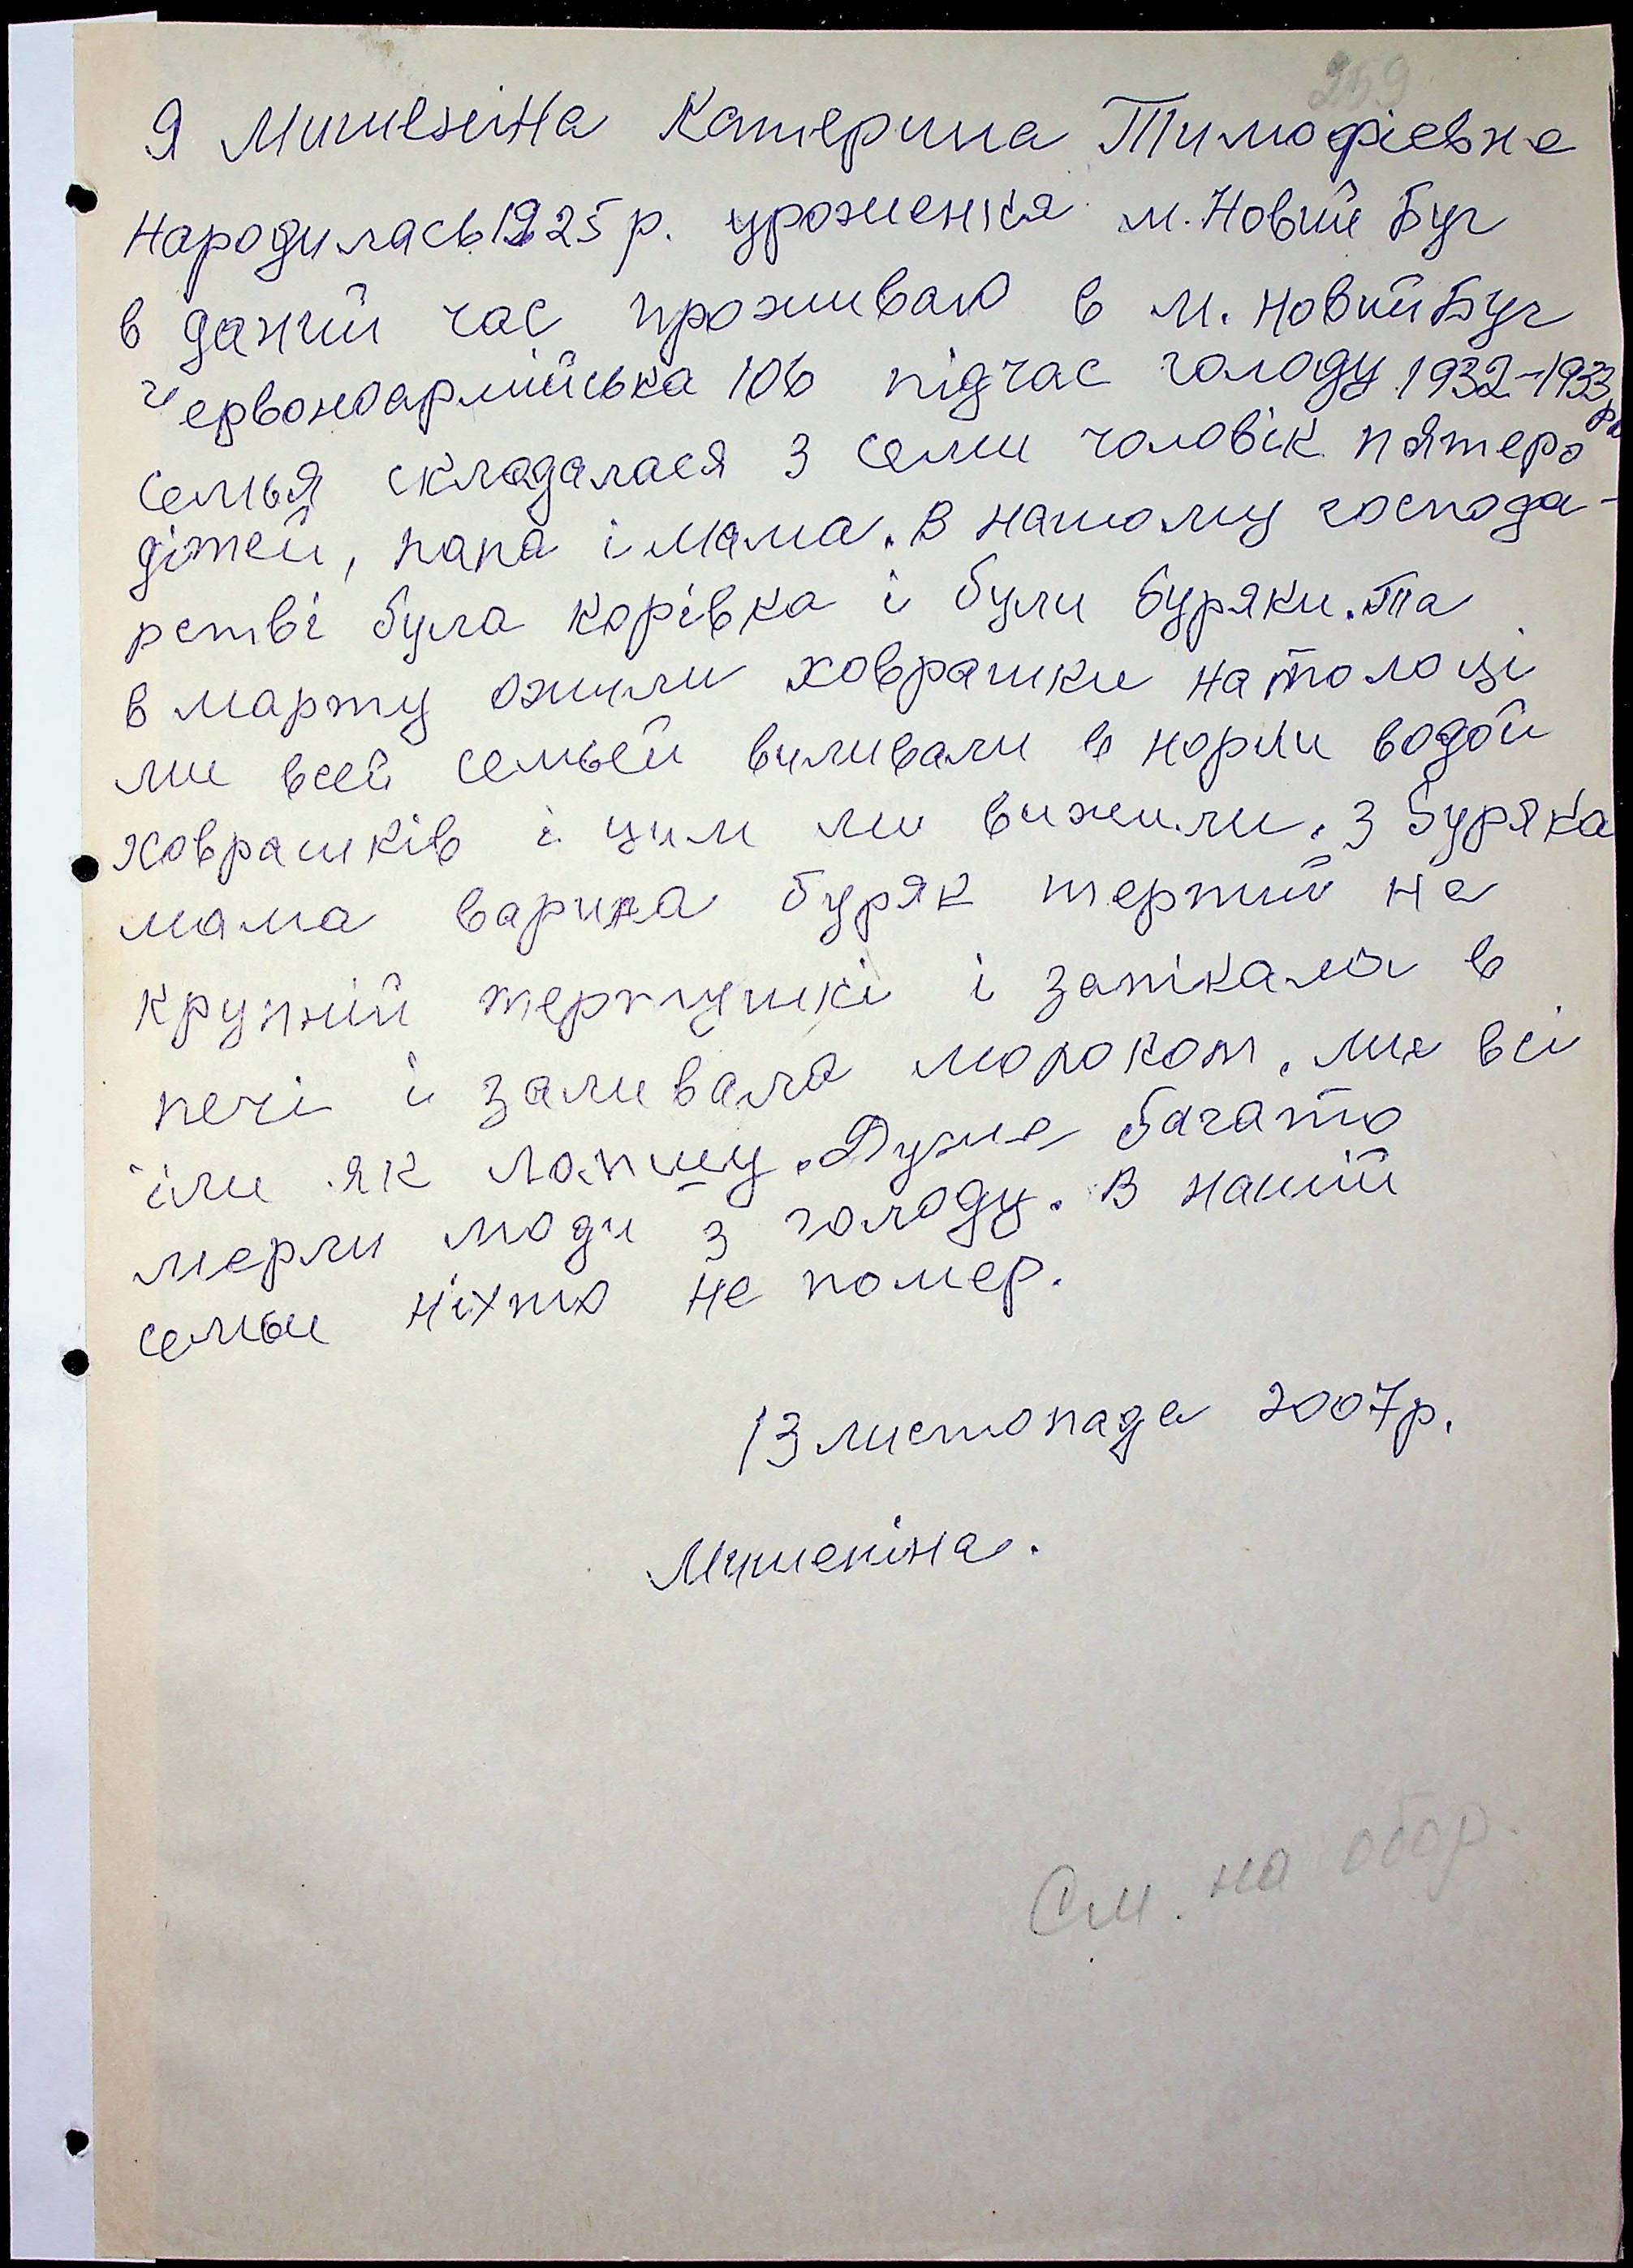 259
Я Мишеніна Катерина Тимофієвна
народилась 1925 р. уроженка м. Новий Буг
в даний час проживаю в м. Новий Буг
Червоноармійська 106 підчас голоду 1932-1933 рр
семья складалася з семи чоловік пятеро
дітей, папа і мама. В нашому господа-
рстві була корівка і були буряки. Та
в марту ожили ховрашки на толоці
ми всей семьей виливали в норми водой
ховрашків і цим ми вижили. З буряка
мама варила буряк тертий на
крупній тертушкі і запікала в
печі і заливала молоком. ми всі
їли як лапшу. Дуже багато
мерли люди з голоду. В нашій
семьи ніхто не помер.
13 листопада 2007р.
Мишеніна.
См. на обор.